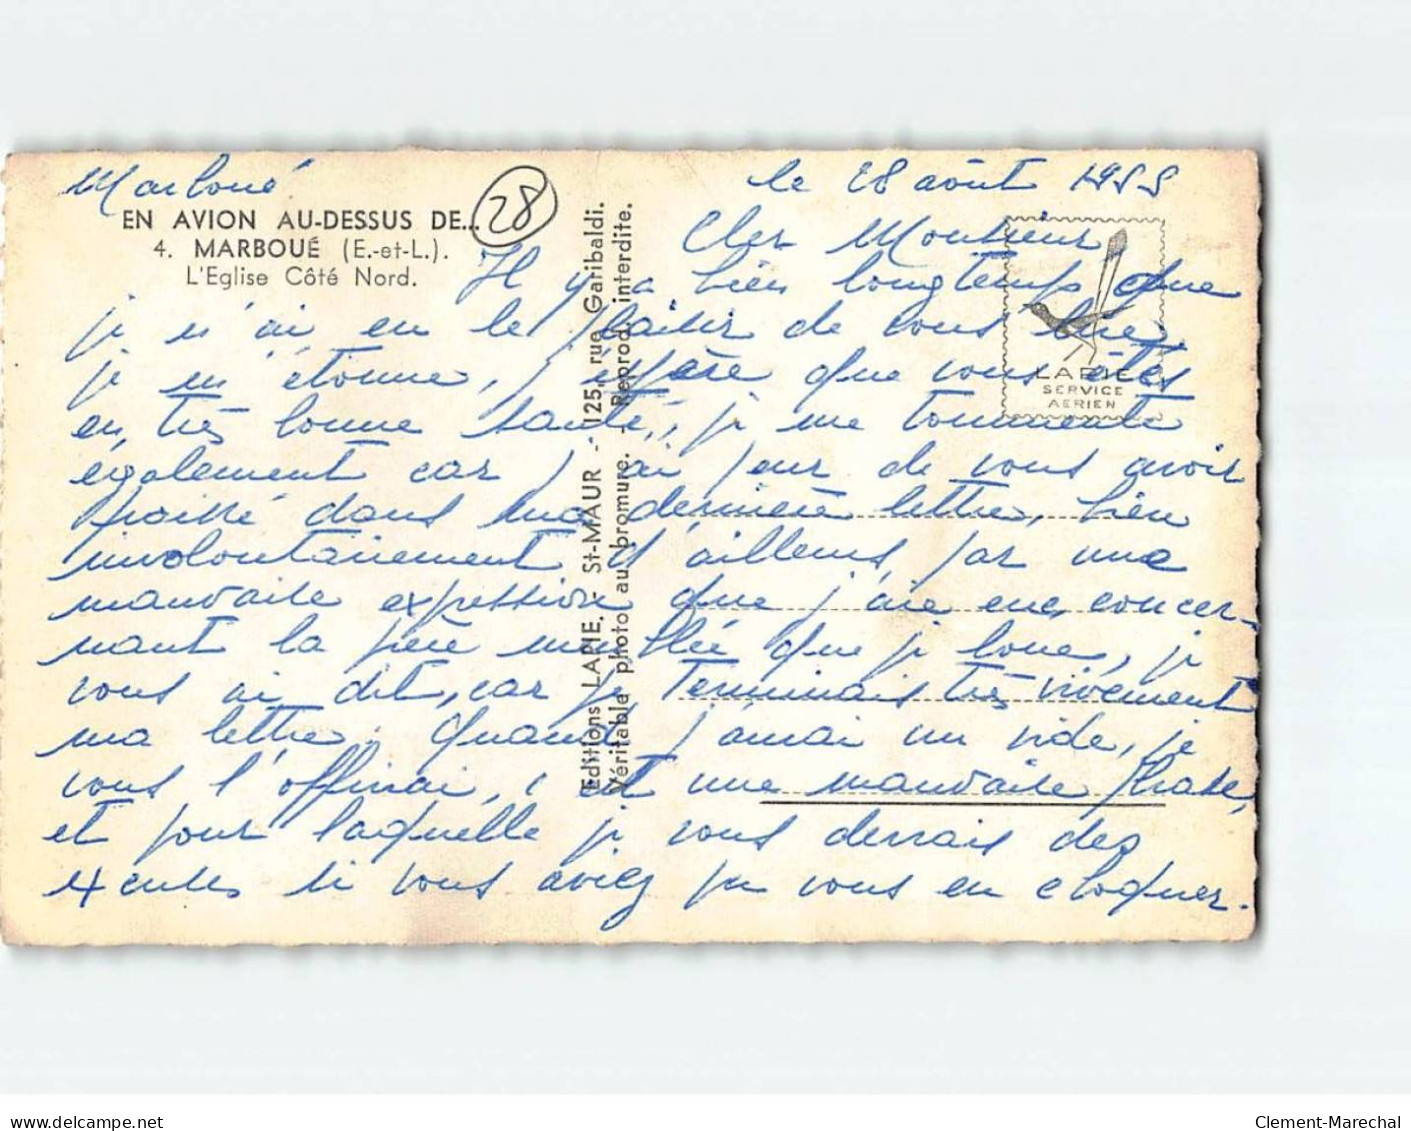 Marboué
le 28 août 1955
EN AVION AU-DESSUS DE...
28
4. MARBOUÉ (E.-et-L.).
L'Eglise Côté Nord.
Cher Monsieur
Il y a bien longtemps que
je n'ai eu le plaisir de vous lire,
je m'étonne, j'espère que vous êtes
en très bonne santé, je me tourmente
également car j'ai peur de vous avoir
froissé dans ma dernière lettre, bien
involontairement d'ailleurs, par une
mauvaise expression que j'aie eue, concer-
nant la pièce meublée que je loue, je
vous ai dit, car je terminais très vivement
ma lettre. Quand j'aurai un vide, je
vous l'offrirai, c'est une mauvaise phrase,
et pour laquelle je vous devrais des
excuses si vous aviez pu vous en choquer.
Editions LAPIE. - St-MAUR - 125, rue Garibaldi.
Véritable photo au bromure. - Reprod. interdite.
LAPIE
SERVICE
AERIEN
www.delcampe.net
Clement-Marechal